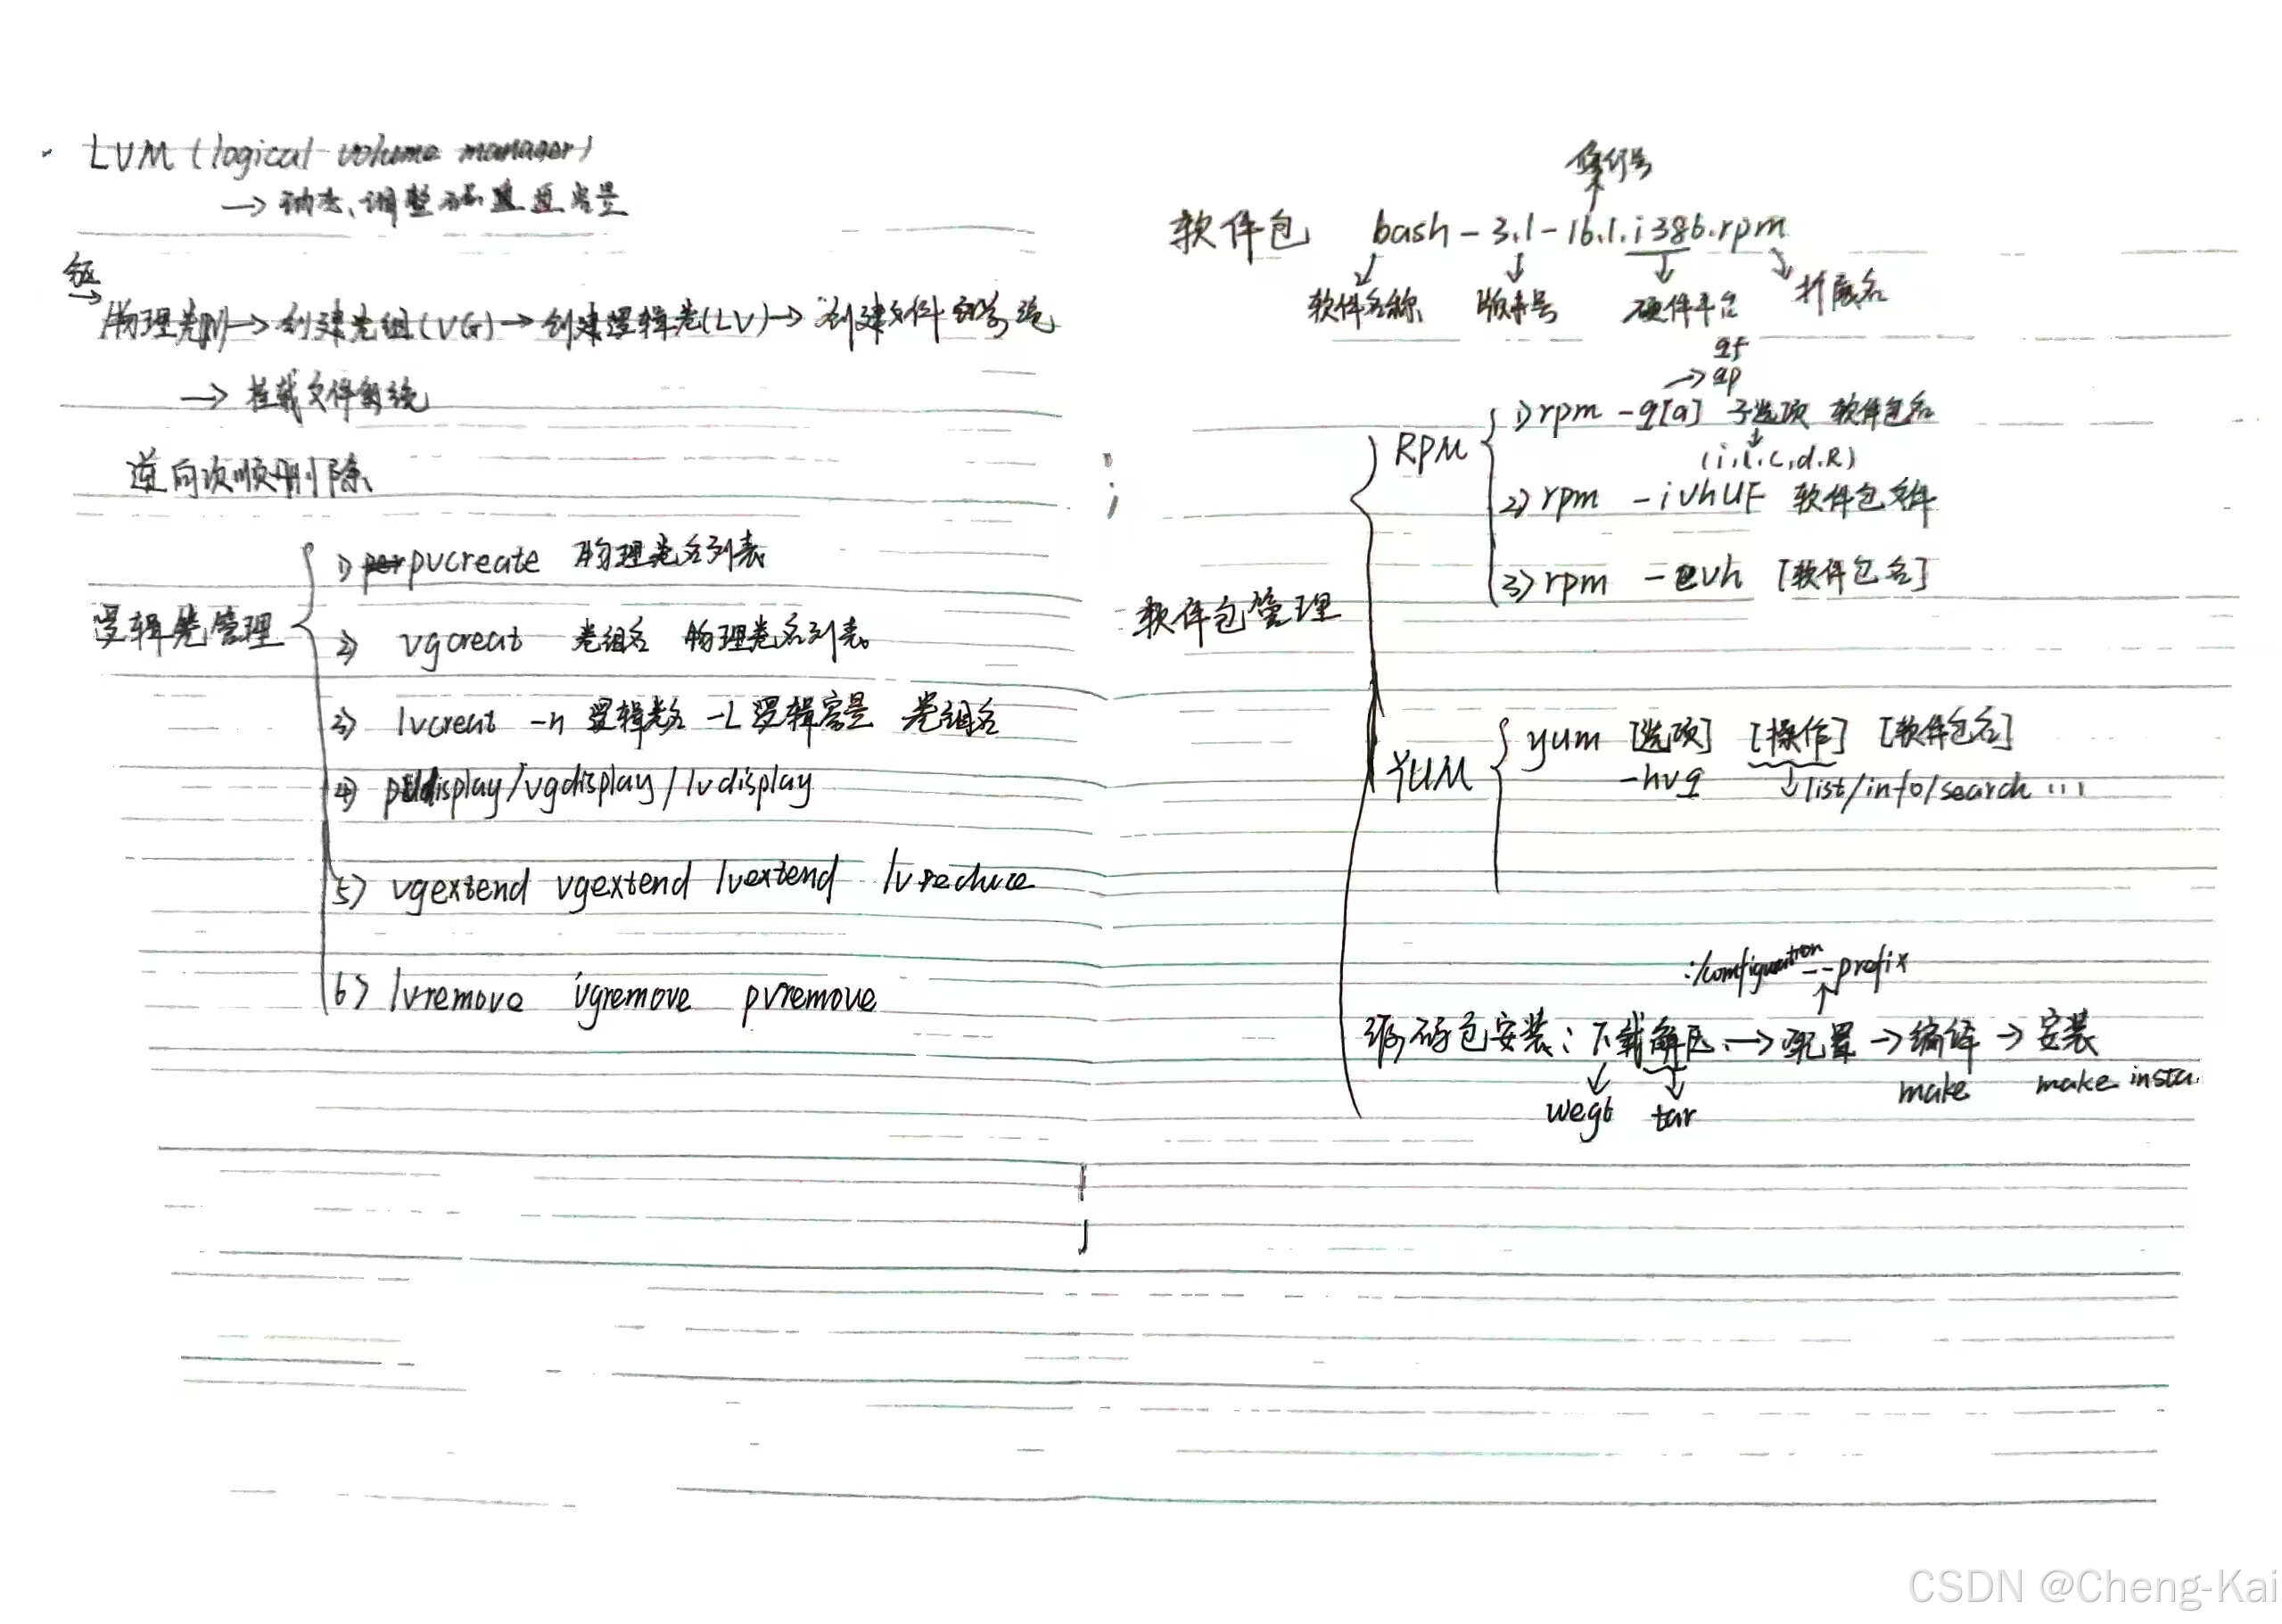 LVM (logical volume manager)
→ 动态、调整 容量
物理卷 → 创建卷组(VG) → 创建逻辑卷(LV) → 创建文件系统
→ 挂载文件系统
逆向次顺删除
逻辑卷管理
1) pvcreate 物理卷名列表
2) vgcreat 卷组名 物理卷名列表
3) lvcreat -n 逻辑卷名 -L 逻辑容量 卷组名
4) pvdisplay/vgdisplay/lvdisplay
5) vgextend vgextend lvextend lvreduce
6) lvremove vgremove pvremove
发行号
软件包 bash-3.1-16.1.i386.rpm
软件名称 版本号 硬件平台 扩展名
软件包管理
qf
→ qp
RPM 1) rpm -q[a] 子选项 软件包名
(i.l.c.d.R)
2) rpm -ivhUF 软件包文件
3) rpm -evh [软件包名]
YUM yum [选项] [操作] [软件包名]
-hvq ↓ list/info/search ...
./configuration --prefix
源码包安装: 下载解压 → 配置 → 编译 → 安装
wegt tar make make insta.
CSDN @Cheng-Kai